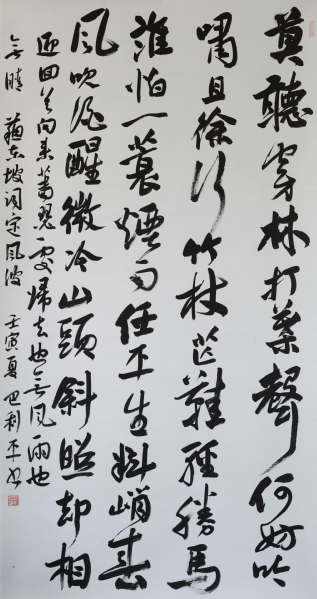 莫聽穿林打葉聲何妨吟
嘯且徐行竹杖芒鞋輕勝馬
誰怕一蓑煙雨任平生料峭春
風吹酒醒微冷山頭斜照却相
迎回首向来蕭瑟處歸去也无風雨也
无晴 蘇東坡词定風波 壬寅夏 巴利平书